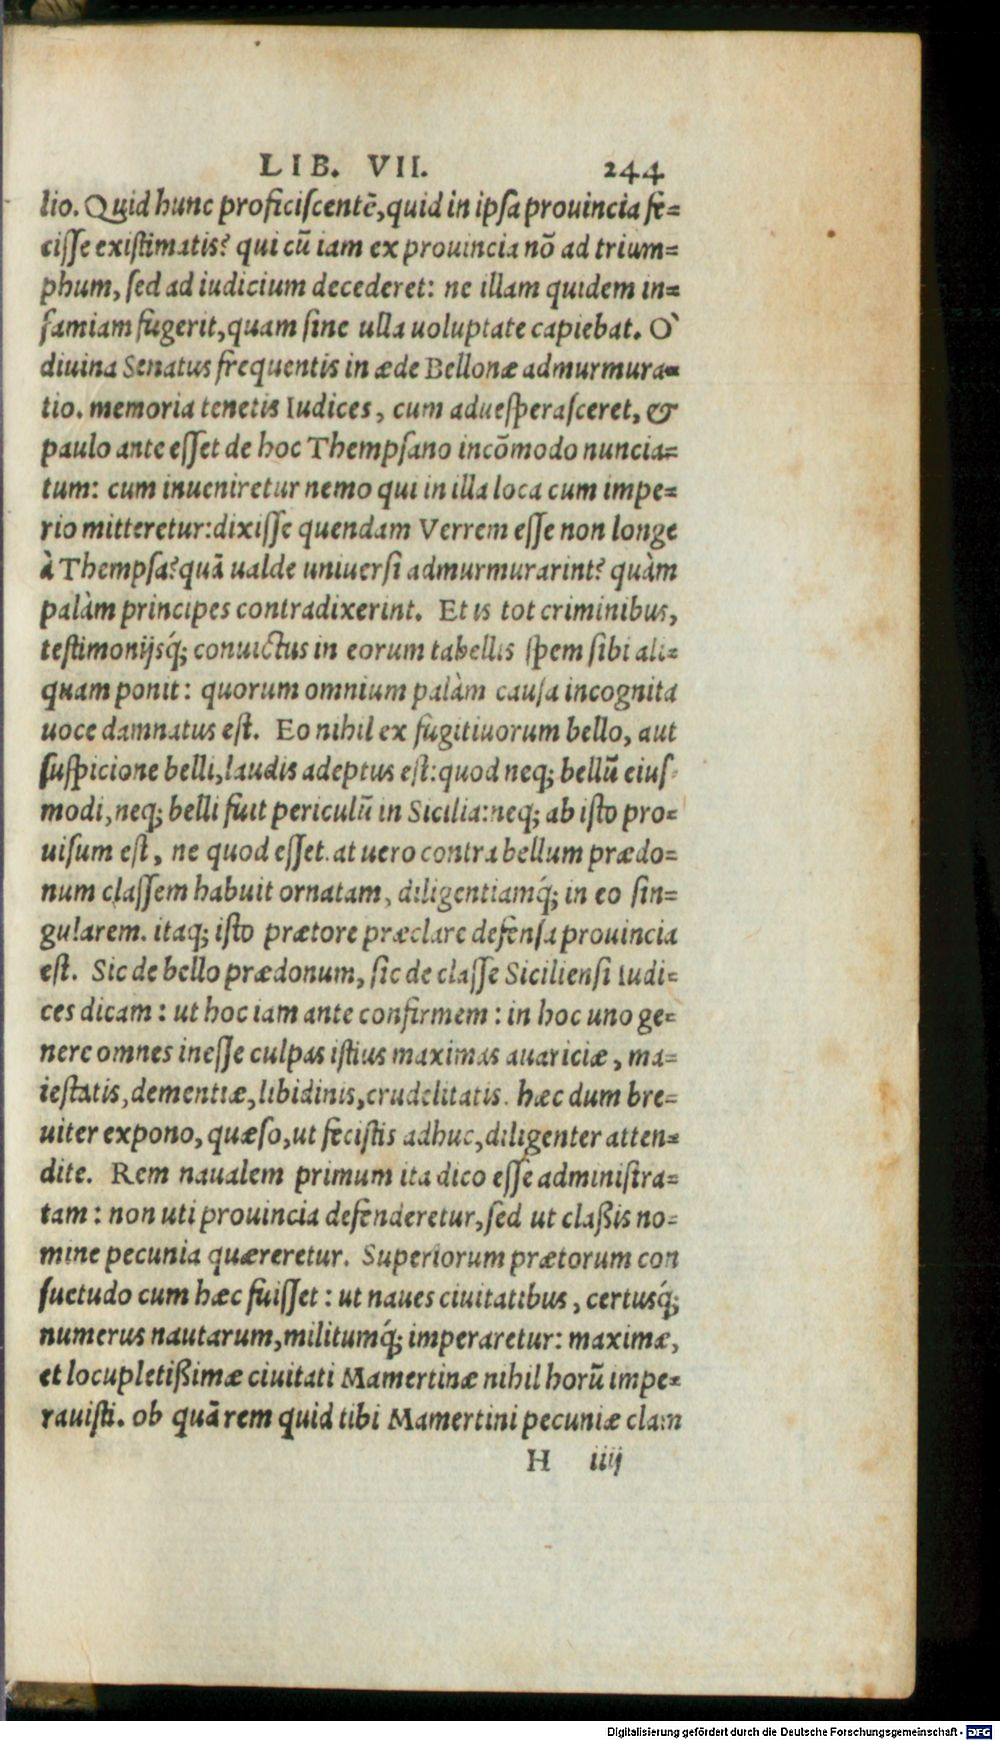 LIB. VII. 244
lio. Quid hunc proficiscentē, quid in ipsa prouincia fe=
cisse existimatis? qui cū iam ex prouincia nō ad trium=
phum, sed ad iudicium decederet: ne illam quidem in=
famiam fugerit, quam sine ulla uoluptate capiebat. Ò
diuina Senatus frequentis in æde Bellonæ admurmura=
tio. memoria tenetis Iudices, cum aduesperasceret, &
paulo ante esset de hoc Thempsano incōmodo nuncia=
tum: cum inueniretur nemo qui in illa loca cum impe=
rio mitteretur: dixisse quendam Verrem esse non longe
à Thempsa? quā ualde uniuersi admurmurarint? quàm
palàm principes contradixerint. Et is tot criminibus,
testimonijsq́; conuictus in eorum tabellis spem sibi ali=
quam ponit: quorum omnium palàm causa incognita
uoce damnatus est. Eo nihil ex fugitiuorum bello, aut
suspicione belli, laudis adeptus est: quod neq; bellū eius
modi, neq; belli fuit periculū in Sicilia: neq; ab isto pro=
uisum est, ne quod esset. at uero contra bellum prædo=
num classem habuit ornatam, diligentiamq́; in eo sin=
gularem. itaq; isto prætore præclare defensa prouincia
est. Sic de bello prædonum, sic de classe Siciliensi Iudi=
ces dicam: ut hoc iam ante confirmem: in hoc uno ge=
nere omnes inesse culpas istius maximas auariciæ, ma=
iestatis, dementiæ, libidinis, crudelitatis. hæc dum bre=
uiter expono, quæso, ut fecistis adhuc, diligenter atten=
dite. Rem naualem primum ita dico esse administra=
tam: non uti prouincia defenderetur, sed ut claßis no=
mine pecunia quæreretur. Superiorum prætorum con
suetudo cum hæc fuisset: ut naues ciuitatibus, certusq́;
numerus nautarum, militumq́; imperaretur: maximæ,
et locupletißimæ ciuitati Mamertinæ nihil horū impe=
rauisti. ob quā rem quid tibi Mamertini pecuniæ clam
H iiij
Digitalisierung gefördert durch die Deutsche Forschungsgemeinschaft - DFG